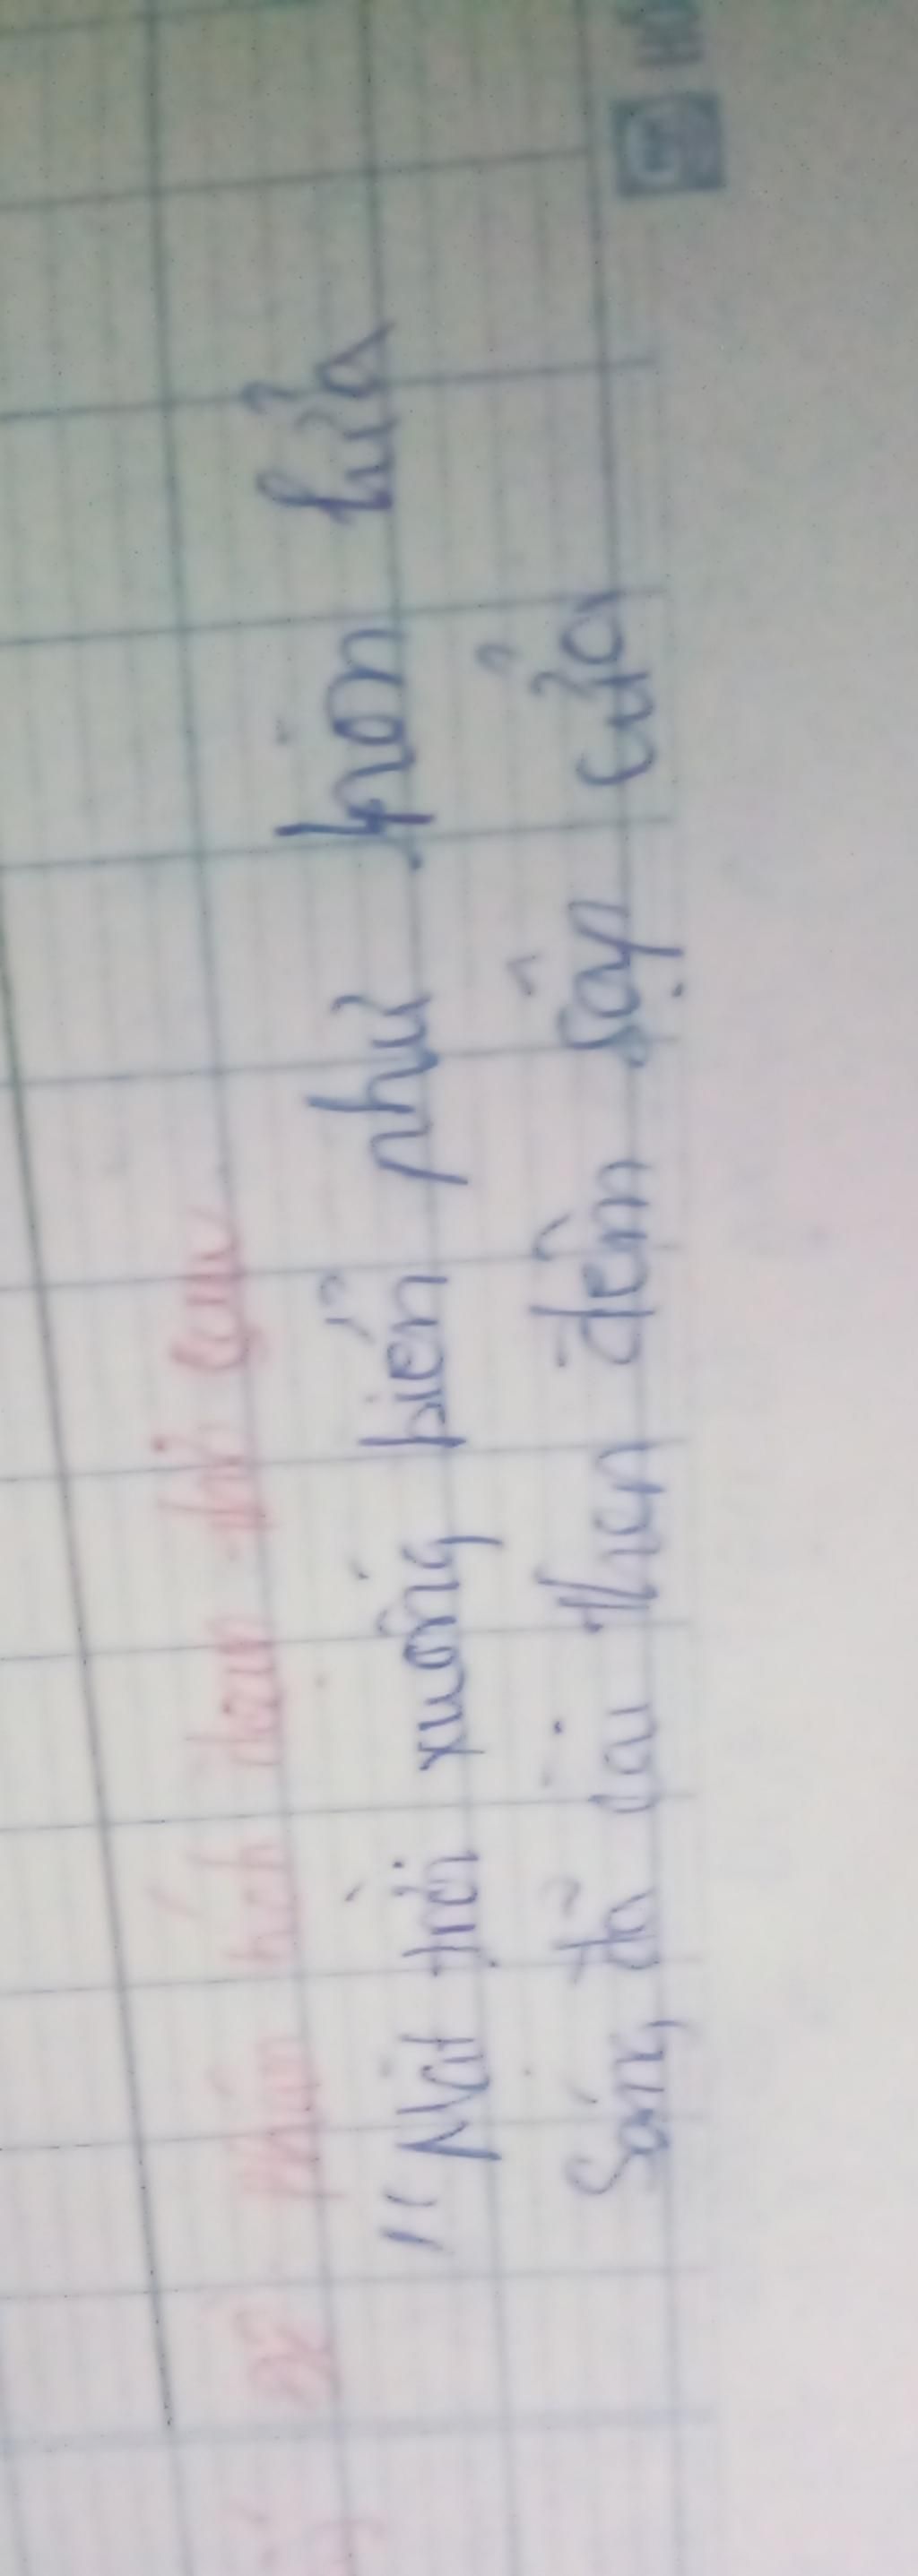 phân tích đoạn thơ sau
"Mặt trời xuống biển như hòn lửa
Sóng đã cài then đêm sập cửa
HO